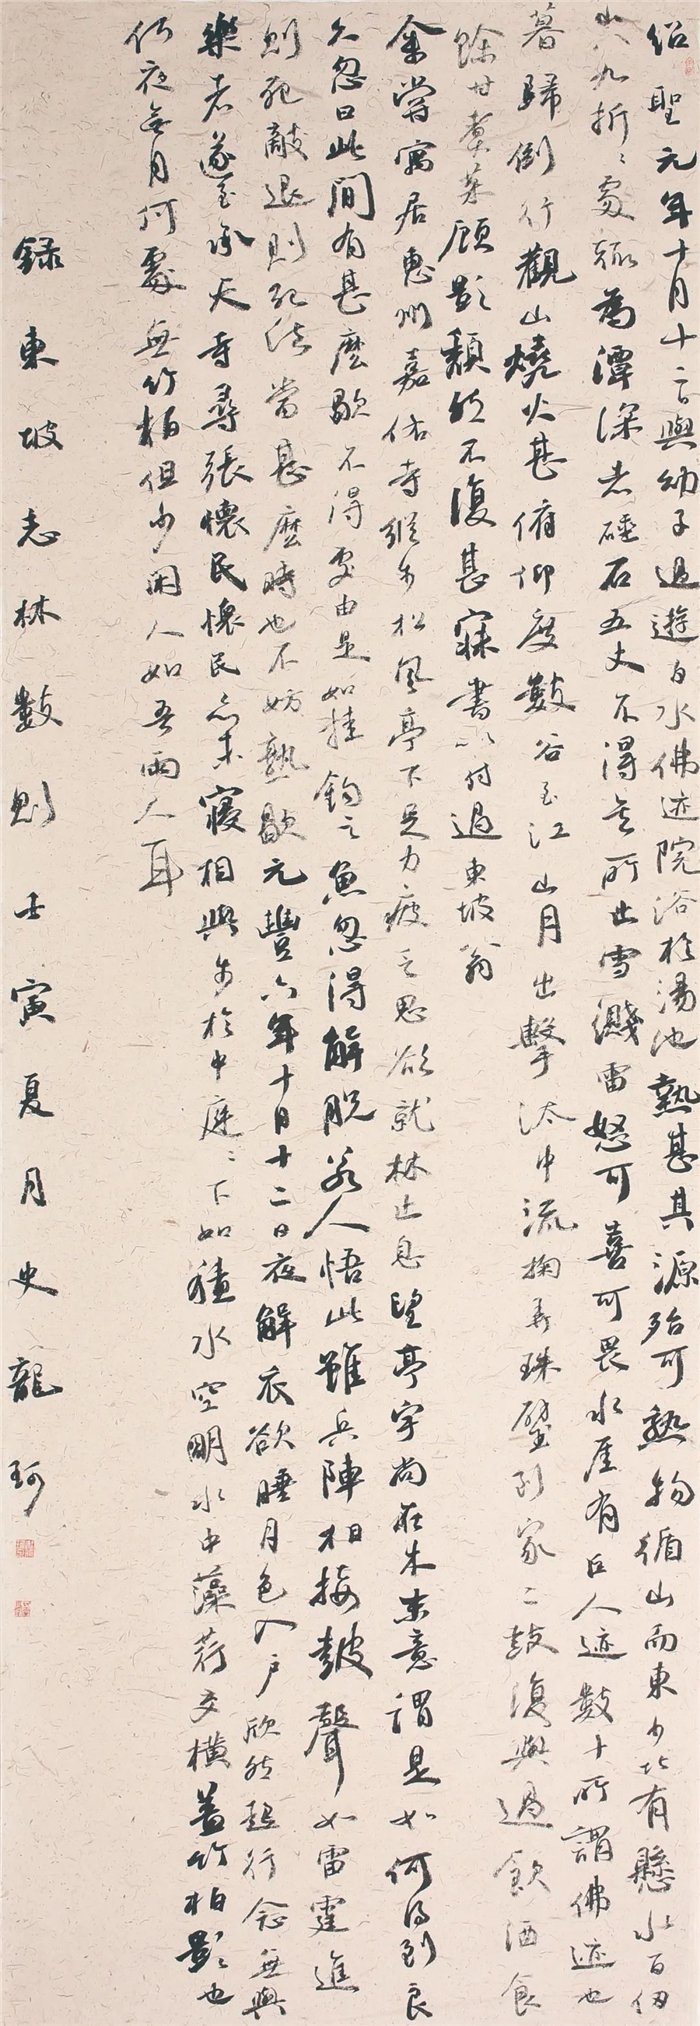 绍聖元年十月十二日與幼子過遊白水佛迹院浴於湯池熱甚其源殆可熟物循山而東少北有懸水百仞
山八九折折處輒為潭深者磓石五丈不得其所止雪濺雷怒可喜可畏水厓有巨人迹數十所謂佛迹也
暮歸倒行觀山燒火甚俯仰度數谷至江山月出擊汰中流掬弄珠璧到家二鼓復與過飲酒食
餘甘煮菜顧影頹然不復甚寐書以付過東坡翁
余嘗寓居惠州嘉佑寺縱步松風亭下足力疲乏思欲就林止息望亭宇尚在木末意謂是如何得到良
久忽曰此間有甚麼歇不得處由是如挂鈎之魚忽得解脱若人悟此雖兵陣相接鼓聲如雷霆進
則死敵退則死法當甚麼時也不妨熟歇元豐六年十月十二日夜解衣欲睡月色入户欣然起行念無與
樂者遂至承天寺尋張懷民懷民亦未寢相與步於中庭庭下如積水空明水中藻荇交横蓋竹柏影也
何夜無月何處無竹柏但少閑人如吾兩人耳
録東坡志林數則壬寅夏月史龍珂